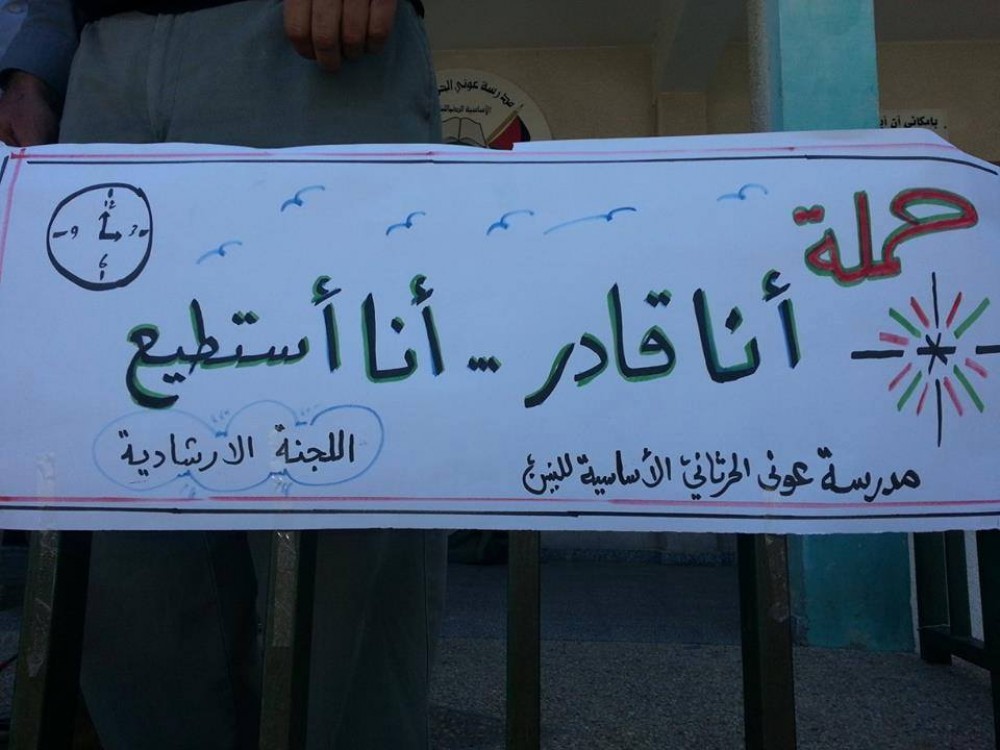 مدرسة عوني الحر
الأساسية
بإمكاني أن
حملة
أنا قادر ... أنا أستطيع
مدرسة عونى الحرثاني الأساسية للبنين
اللجنة الارشادية
12
9 3
6